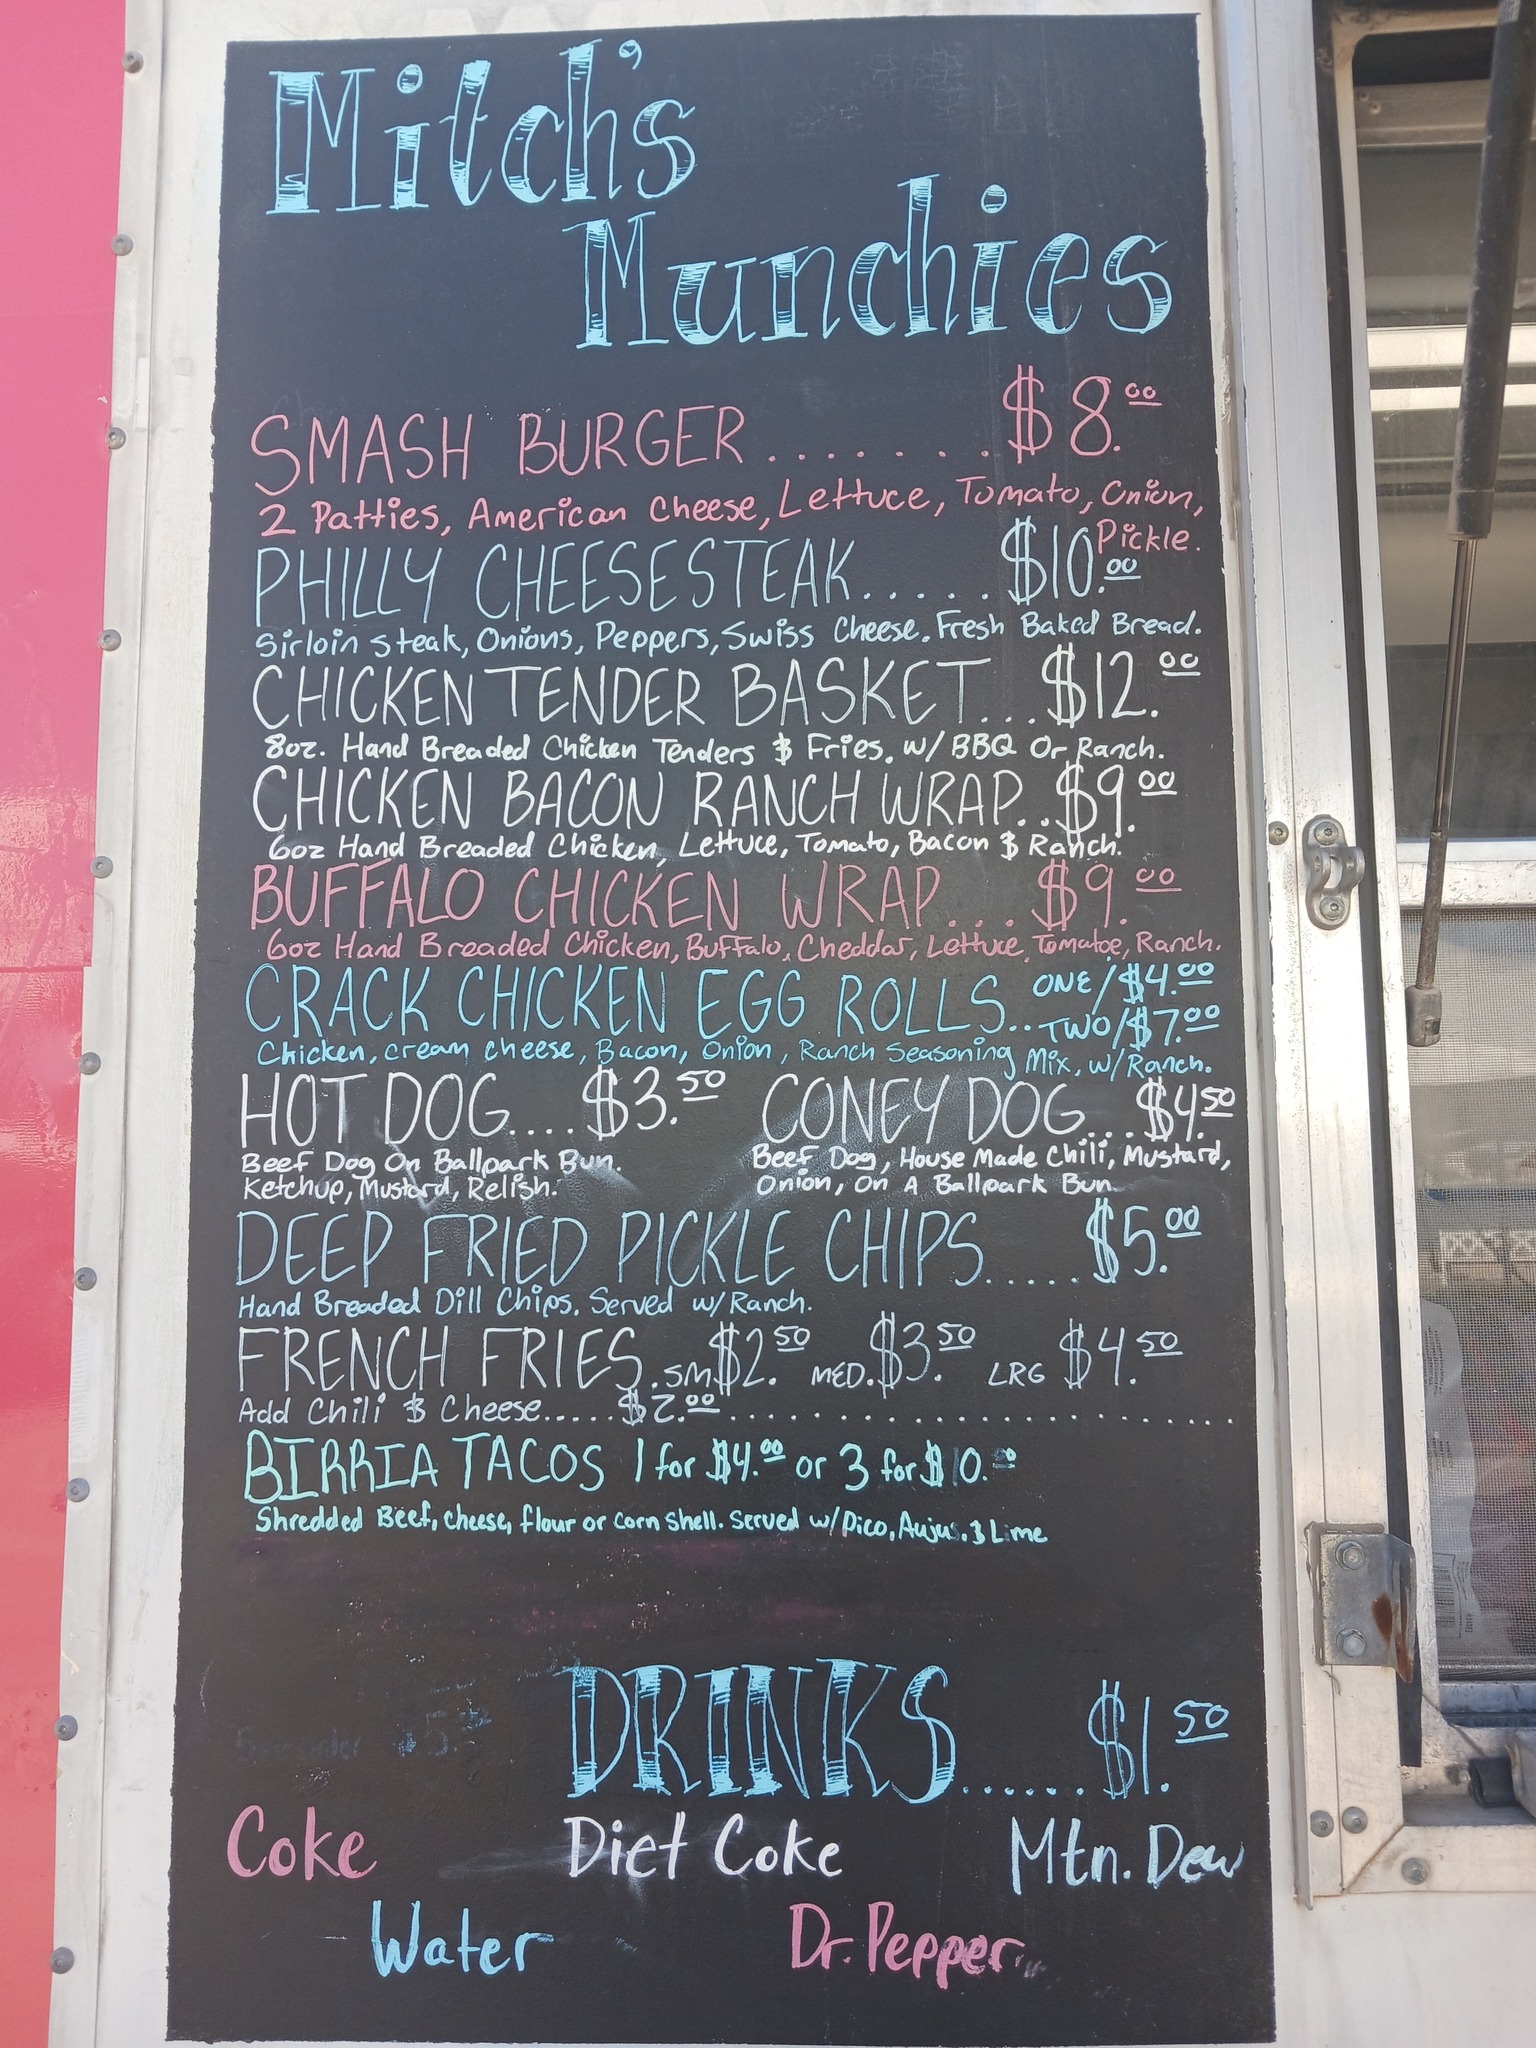 Mitch's
Munchies
SMASH BURGER........$8.00
2 Patties, American Cheese, Lettuce, Tomato, Onion,
Pickle.
PHILLY CHEESESTEAK.....$10.00
Sirloin Steak, Onions, Peppers, Swiss Cheese. Fresh Baked Bread.
CHICKEN TENDER BASKET...$12.00
8oz. Hand Breaded Chicken Tenders & Fries. w/ BBQ Or Ranch.
CHICKEN BACON RANCH WRAP..$9.00
6oz Hand Breaded Chicken, Lettuce, Tomato, Bacon & Ranch.
BUFFALO CHICKEN WRAP....$9.00
6oz Hand Breaded Chicken, Buffalo, Cheddar, Lettuce, Tomatoe, Ranch.
CRACK CHICKEN EGG ROLLS...ONE/$4.00
TWO/$7.00
Chicken, cream cheese, Bacon, Onion, Ranch Seasoning Mix, w/Ranch.
HOT DOG....$3.50 CONEY DOG...$4.50
Beef Dog On Ballpark Bun. Beef Dog, House Made Chili, Mustard,
Ketchup, Mustard, Relish. Onion, On A Ballpark Bun.
DEEP FRIED PICKLE CHIPS.....$5.00
Hand Breaded Dill Chips. Served w/Ranch.
FRENCH FRIES.SM$2.50 MED.$3.50 LRG $4.50
Add Chili & Cheese.....$2.00........................
BIRRIA TACOS 1 for $4.00 or 3 for $10.00
Shredded Beef, cheese, flour or corn shell. Served w/Pico, Aujus. & Lime
DRINKS......$1.50
Coke Diet Coke Mtn. Dew
Water Dr. Pepper